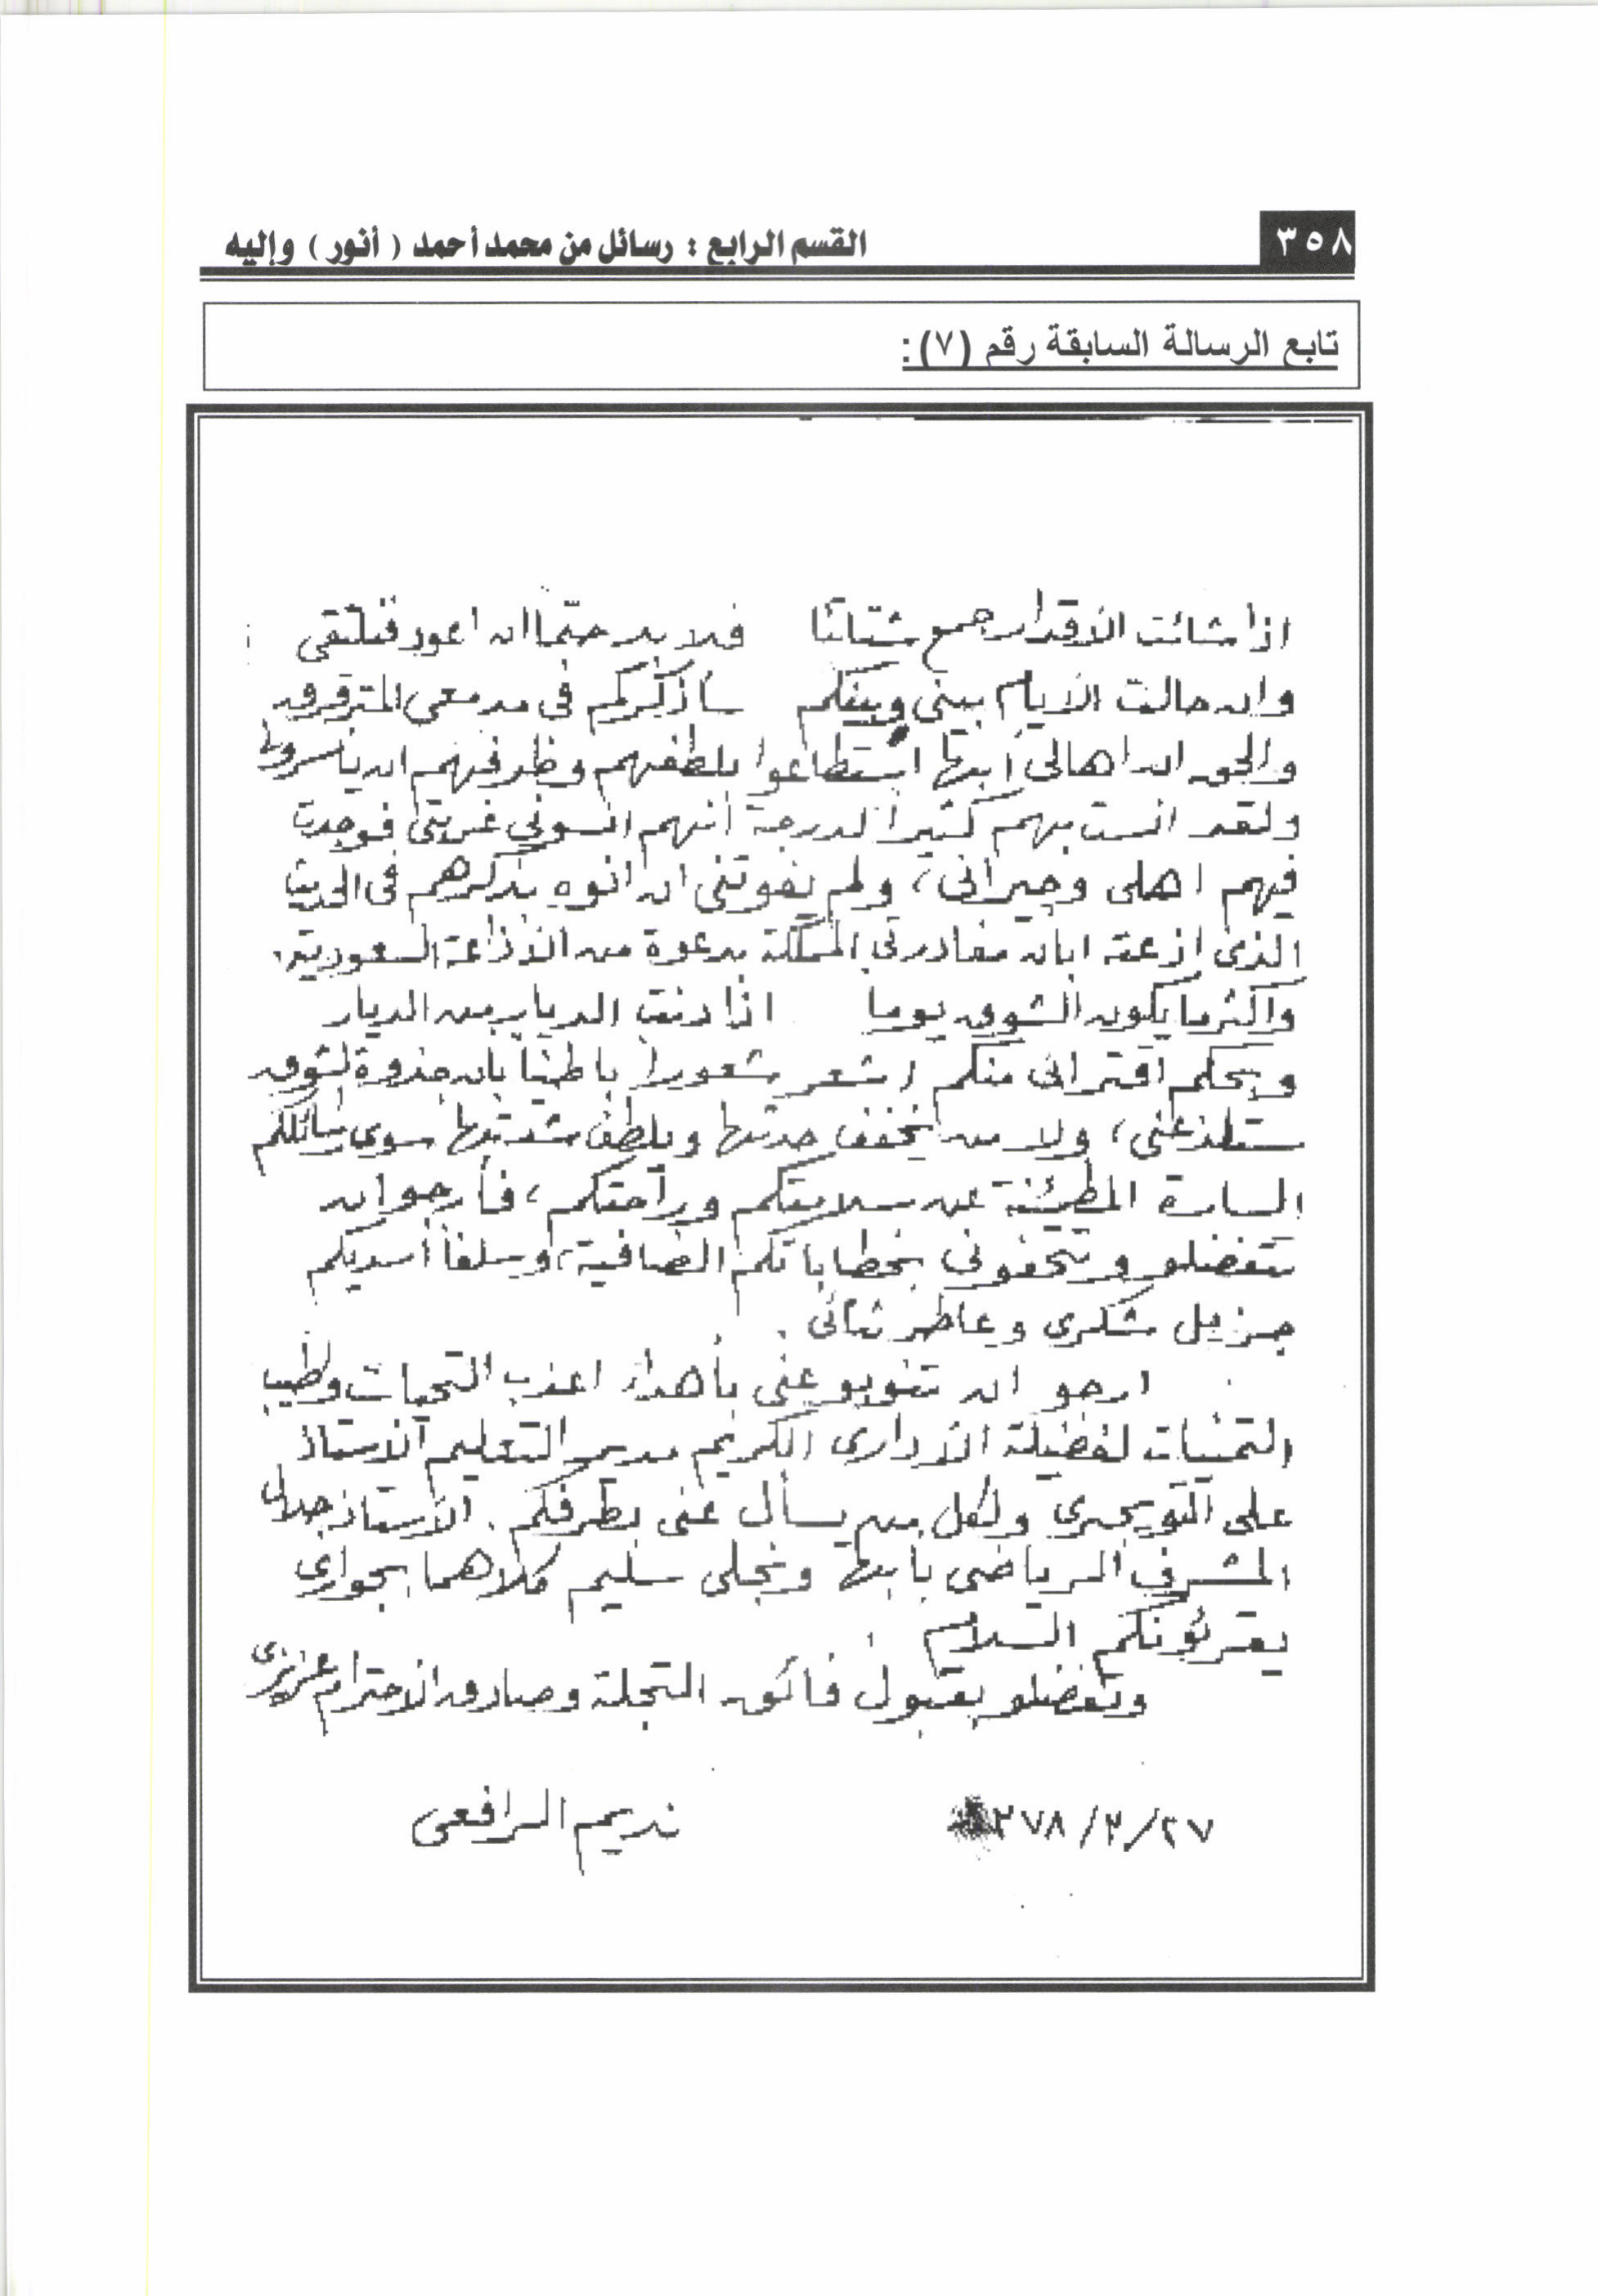 ٣٥٨
القسم الرابع : رسائل من محمد أحمد ( أنور ) وإليه
تابع الرسالة السابقة رقم (٧):
اذا شائت الأقدار جمع شتاتنا فلا بد حتمًا ان اعود فنلتقي
وان حالت الأيام بيني وبينكم سأذكركم في مدمعي المترقرق
والحق ان اهالي أبها استطاعوا بلطفهم وظرفهم ان يأسرونا
ولقد انست بهم كثيرا لدرجة أنهم انسوني غربتي فوجدت
فيهم اهلي وجيراني، ولم يفوتني ان انوه بذكرهم في الحديث
الذي اذعته ابان مغادرتي المملكة بدعوة من الأذاعة السعودية.
واكثر ما يكون الشوق يوما اذا دنت الديار من الديار
وبحكم اقترابي منكم اشعر شعورا باطنيا بان جذوة الشوق
ستلذعني، ولا من يخفف حدتها ويلطف شدتها سوى رسائلكم
السارة المطمئنة عن سلامتكم وراحتكم، فأرجو ان
تتفضلو وتتحفوني بخطاباتكم الضافية، وسلفاً أسديكم
جزيل شكري وعاطر ثنائي.
ارجو ان تنوبو عني بأهداء اعذب التحيات وطيب
التمنيات لفضيلة الأداري الكريم مدير التعليم الاستاذ
علي التويجري ولكل من يسأل عني بطرفكم. الأستاذ جلال
المشرف الرياضي بابها ونجلي سليم كلاهما بجواري
يقرئونكم السلام
وتفضلو بقبول فائق التجلة وصادق الأحترام عزيزي
٢٧/٢/٣٧٨
نديم الرافعي